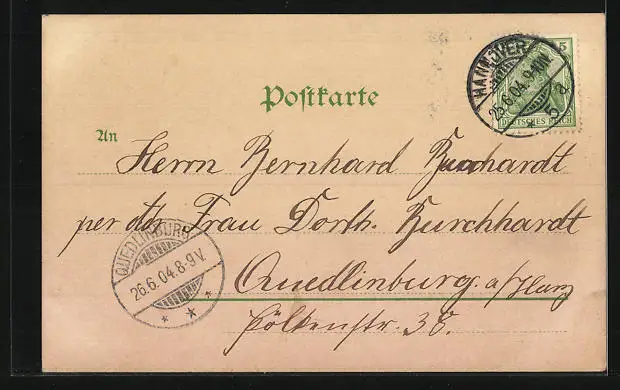 Postkarte
HANNOVER
25.6.04.9-10N.
* 5 a
5
DEUTSCHES REICH
An
Herrn Bernhard Burchhardt
per adr. Frau Dorth. Burchhardt
QUEDLINBURG
26.6.04.8-9V.
* * *
Quedlinburg a/Harz
Pölkenstr. 38.